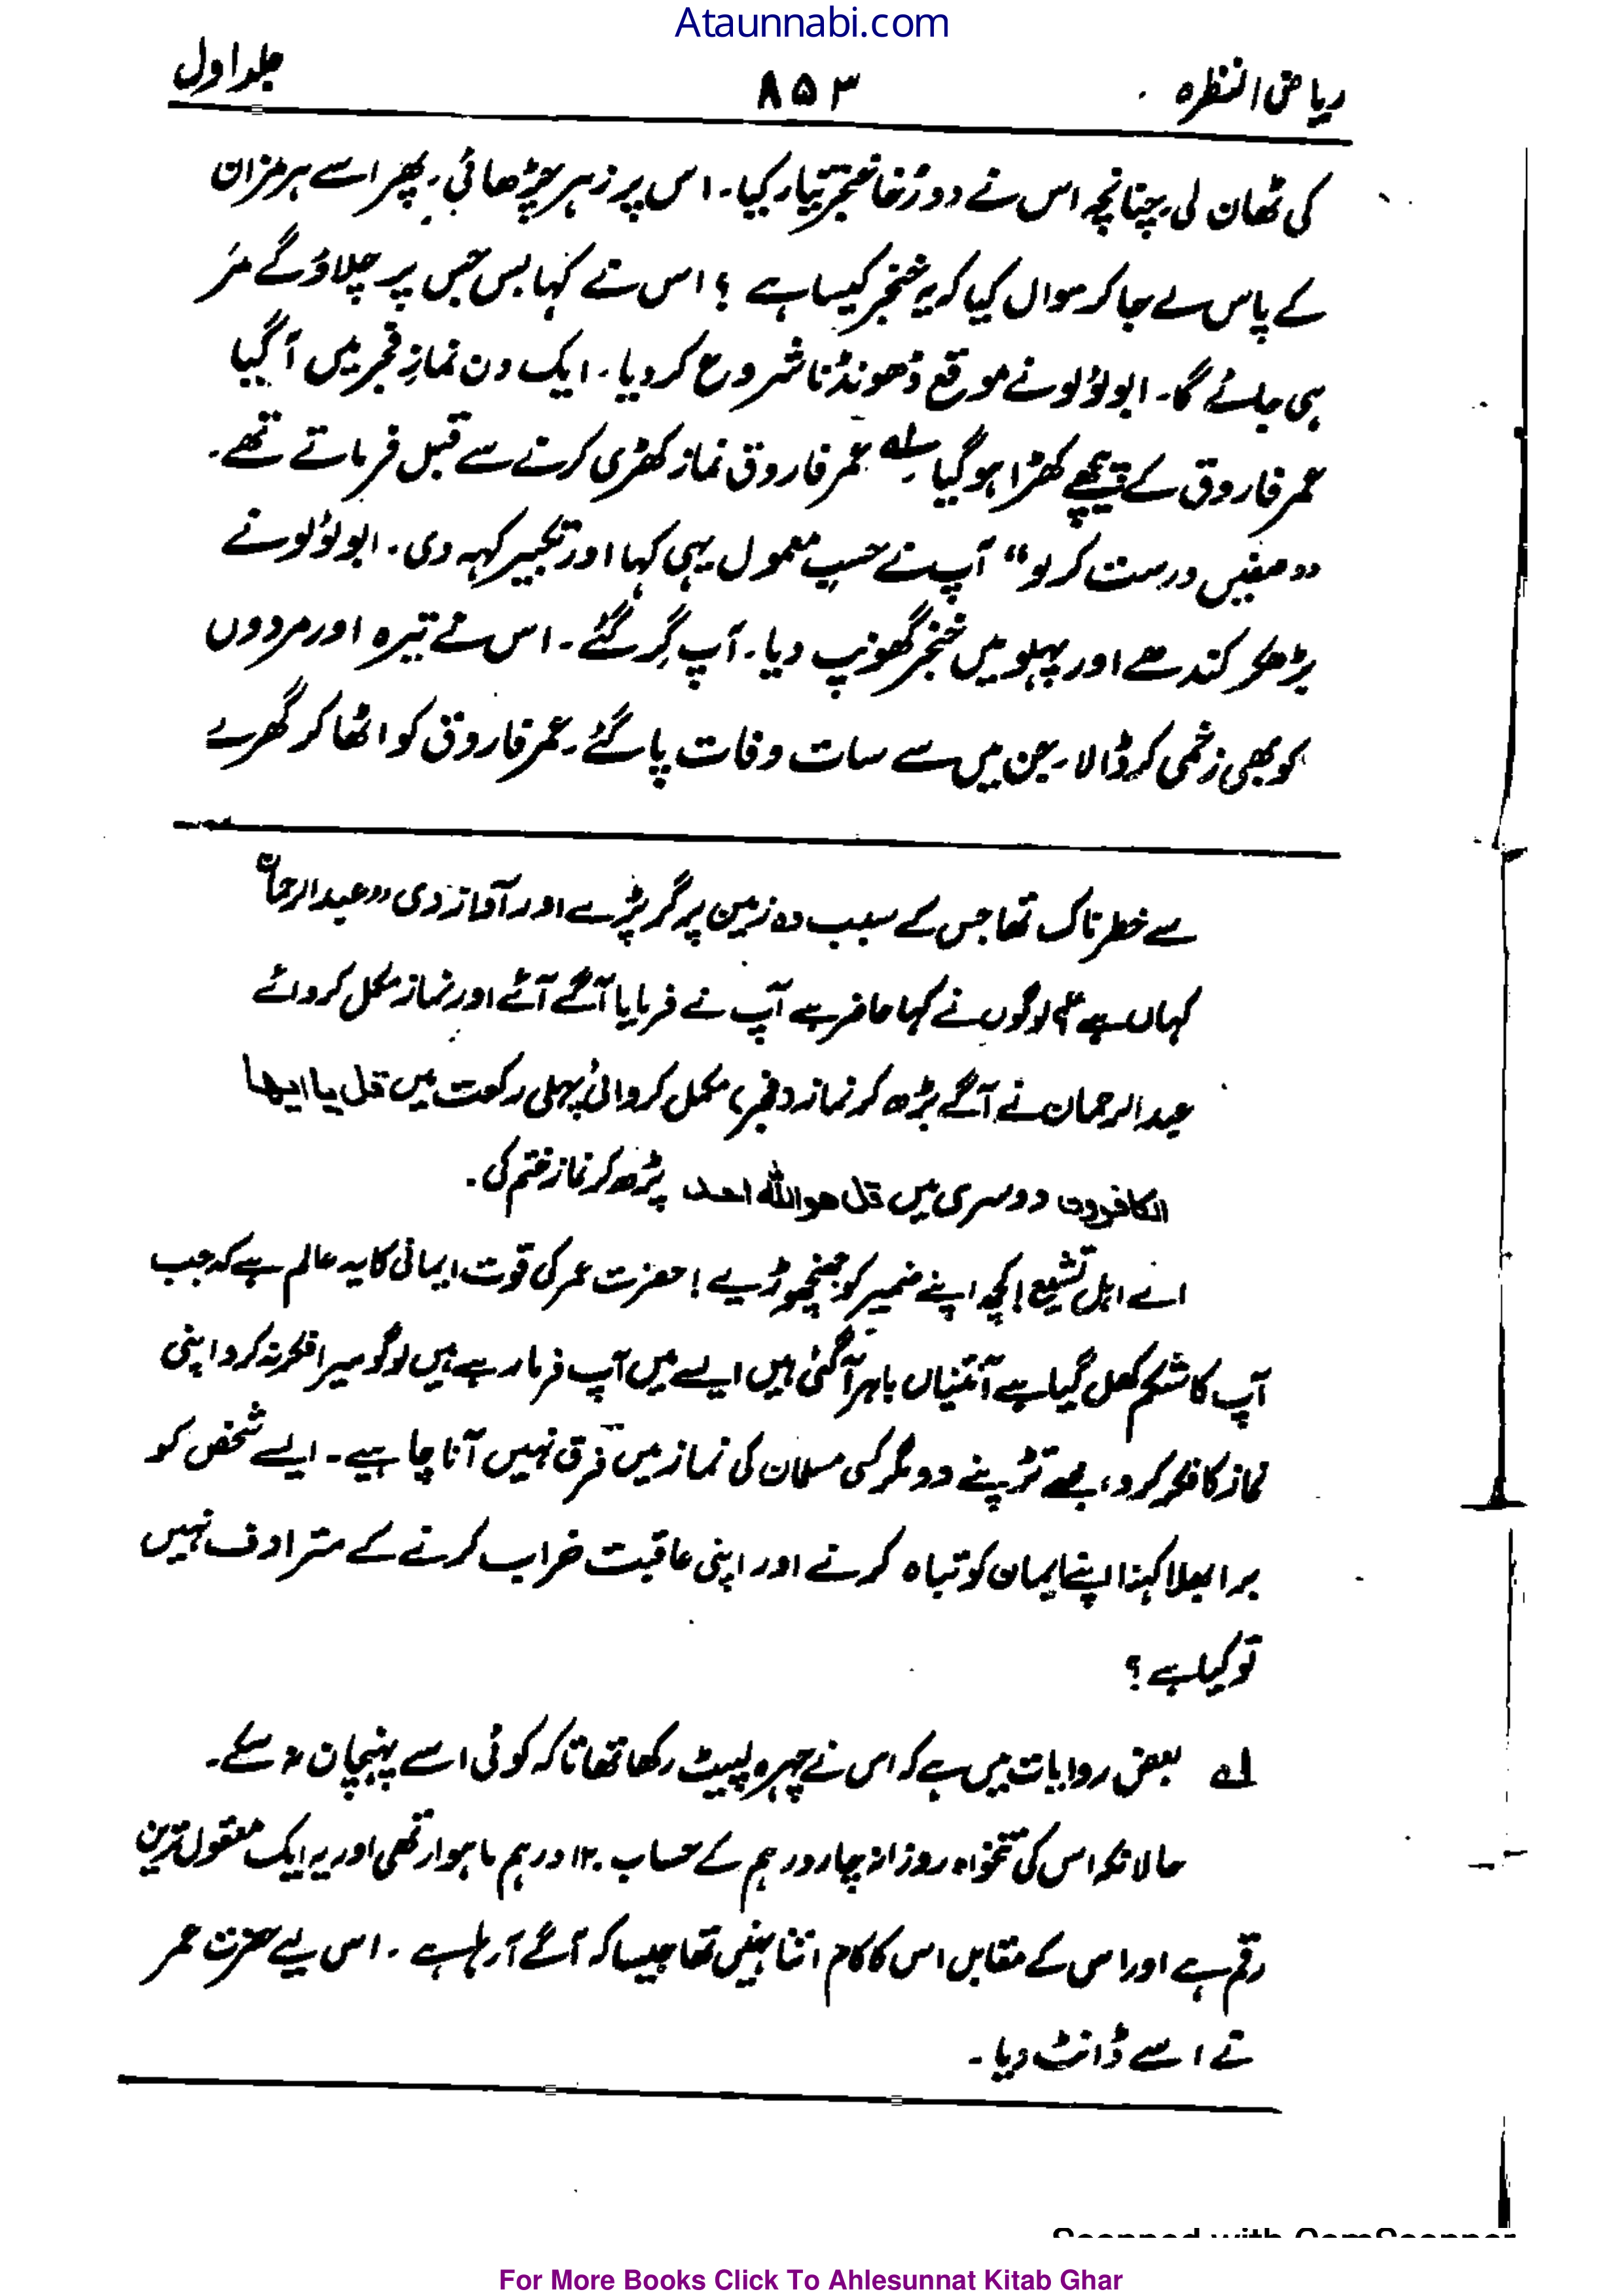 Ataunnabi.com
ریاض النظرہ ۸۵۳ جلد اول
کی ٹھان لی، چنانچہ اس نے دو رُخا خنجر تیار کیا۔ اس پر زہر چڑھائی، پھر اسے ہرمزان
کے پاس لے جا کر سوال کیا کہ یہ خنجر کیسا ہے ؟ اس نے کہا بس جس پر چلاؤ گے مر
ہی جائے گا۔ ابولؤلو نے موقع ڈھونڈنا شروع کر دیا۔ ایک دن نمازِ فجر میں آ گیا
عمر فاروق کے پیچھے کھڑا ہو گیا لہ عمر فاروق نماز کھڑی کرنے سے قبل فرماتے تھے۔
’’صفیں درست کر لو‘‘ آپ نے حسبِ معمول یہی کہا اور تکبیر کہہ دی۔ ابولؤلو نے
بڑھ کر کندھے اور پہلو میں خنجر گھونپ دیا۔ آپ گِر گئے۔ اس نے تیرہ اور مردوں
کو بھی زخمی کر ڈالا۔ جن میں سے سات وفات پا گئے۔ عمر فاروق کو اٹھا کر گھر لے
سے خطرناک تھا جس کے سبب وہ زمین پر گر پڑے اور آواز دی ’’عبدالرحمان
کہاں ہے‘‘؟ لوگوں نے کہا حاضر ہے آپ نے فرمایا آگے آئے اور نماز مکمل کروائے
عبدالرحمان نے آگے بڑھ کر نماز (فجر) مکمل کروائی پہلی رکعت میں قل یا ایھا
الکافرون دوسری میں قل ھو اللہ احد پڑھ کر نماز ختم کی۔
اے اہل تشیع! کچھ اپنے ضمیر کو جھنجھوڑیے! حضرت عمر کی قوت ایمانی کا یہ عالم ہے کہ جب
آپ کا شکم کھل گیا ہے آنتیاں باہر آ گئی ہیں ایسے میں آپ فرما رہے ہیں لوگو میرا فکر نہ کرو اپنی
نماز کا فکر کرو، مجھے تڑپنے دو مگر کسی مسلمان کی نماز میں فرق نہیں آنا چاہیے۔ ایسے شخص کو
برا بھلا کہنا اپنے ایمان کو تباہ کرنے اور اپنی عاقبت خراب کرنے کے مترادف نہیں
تو کیا ہے ؟
لہ بعض روایات میں ہے کہ اس نے چہرہ لپیٹ رکھا تھا تاکہ کوئی اسے پہنچان نہ سکے۔
حالانکہ اس کی تنخواہ روزانہ چار درہم کے حساب ۱۲۰ درہم ماہوار تھی اور یہ ایک معقول ترین
رقم ہے اور اس کے مقابل اس کا کام اتنا نہیں تھا جیسا کہ آگے آ رہا ہے۔ اس لیے حضرت عمر
نے اسے ڈانٹ دیا۔
Scanned with CamScanner
For More Books Click To Ahlesunnat Kitab Ghar